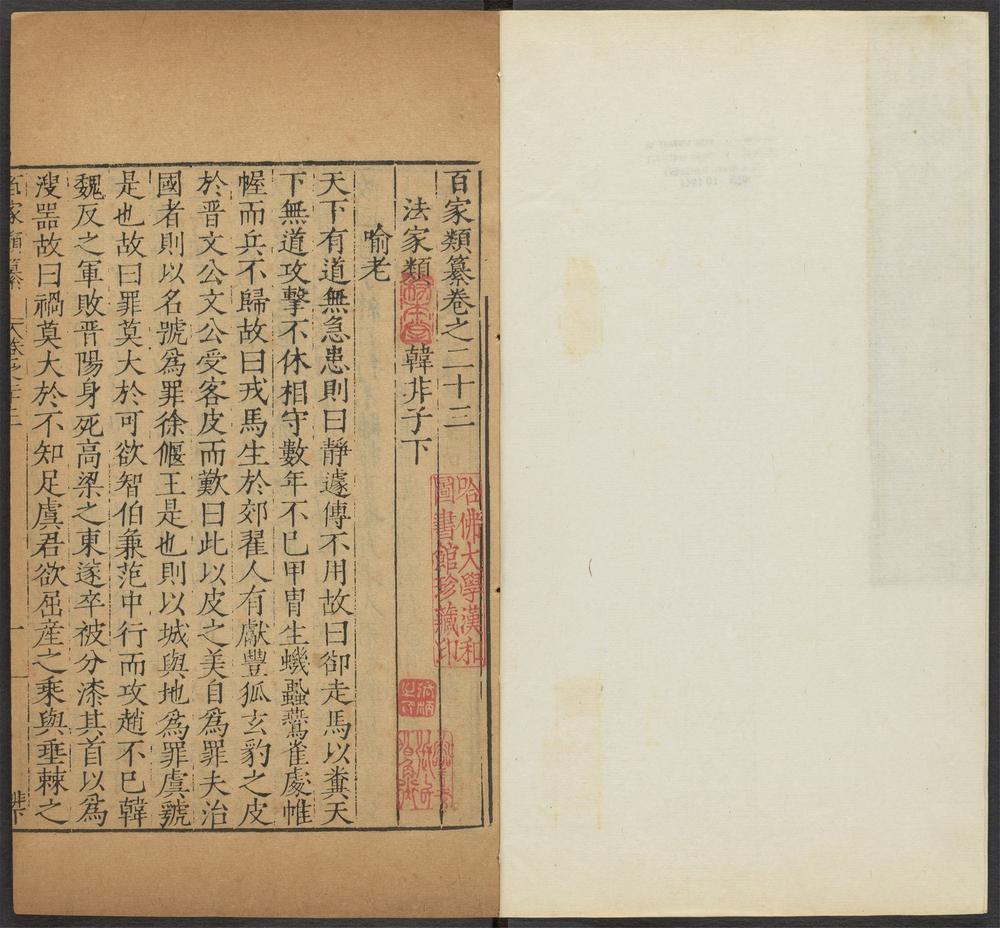 百家類纂卷之二十三
法家類 韓非子下
喻老
天下有道無急患則曰靜遽傳不用故曰卻走馬以糞天
下無道攻擊不休相守數年不已甲胄生蟣蝨鷰雀處帷
幄而兵不歸故曰戎馬生於郊翟人有獻豐狐玄豹之皮
於晉文公文公受客皮而歎曰此以皮之美自爲罪夫治
國者則以名號爲罪徐偃王是也則以城與地爲罪虞虢
是也故曰罪莫大於可欲智伯兼范中行而攻趙不已韓
魏反之軍敗晉陽身死高梁之東遂卒被分漆其首以爲
溲器故曰禍莫大於不知足虞君欲屈產之乘與垂棘之
百家類纂 卷之二十三 一
哈佛大學漢和
圖書館珍藏印